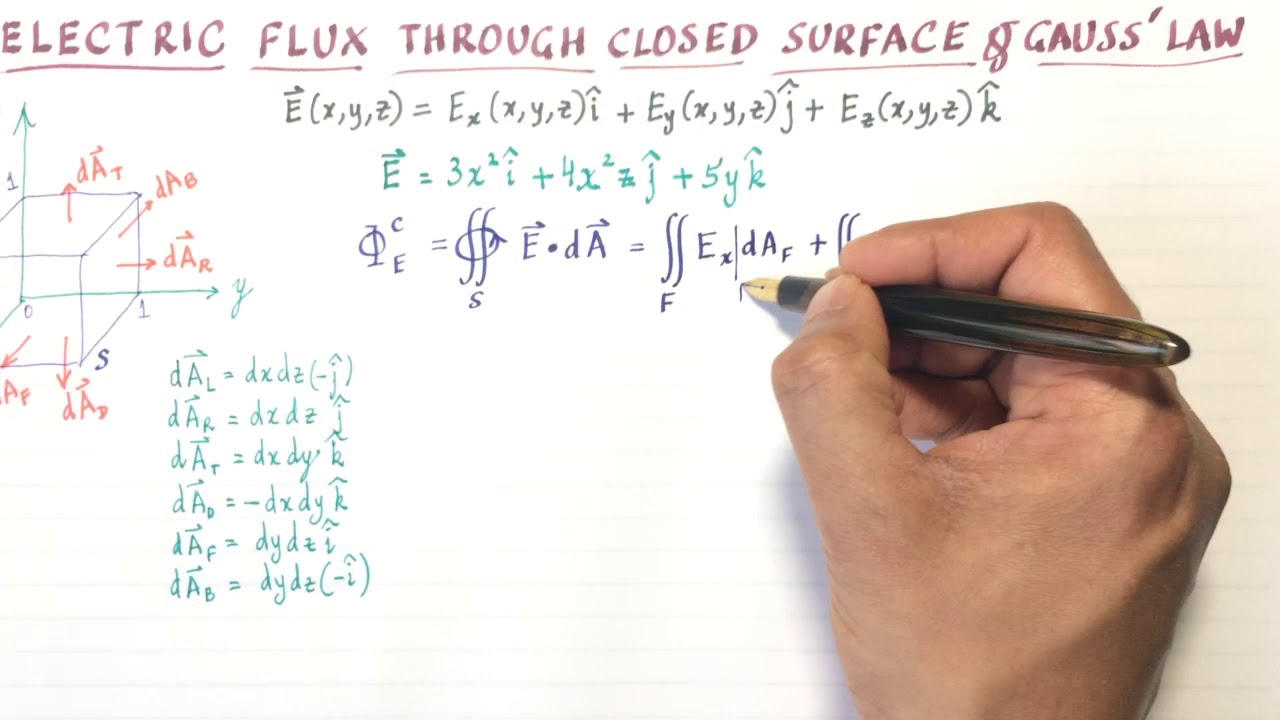 ELECTRIC FLUX THROUGH CLOSED SURFACE & GAUSS' LAW
E⃗(x,y,z) = Eₓ(x,y,z)î + E_y(x,y,z)ĵ + E_z(x,y,z)k̂
E⃗ = 3x²î + 4x²zĵ + 5yk̂
Φ_E^C = ∯_S E⃗·dA⃗ = ∬_F Eₓ|dA_F + ∬
1
dA⃗_T
dA_B
dA⃗_R
y
0
1
S
dA_F
dA⃗_D
dA⃗_L = dxdz(-ĵ)
dA⃗_R = dxdz ĵ
dA⃗_T = dxdy k̂
dA⃗_D = -dxdy k̂
dA⃗_F = dydz î
dA⃗_B = dydz(-î)